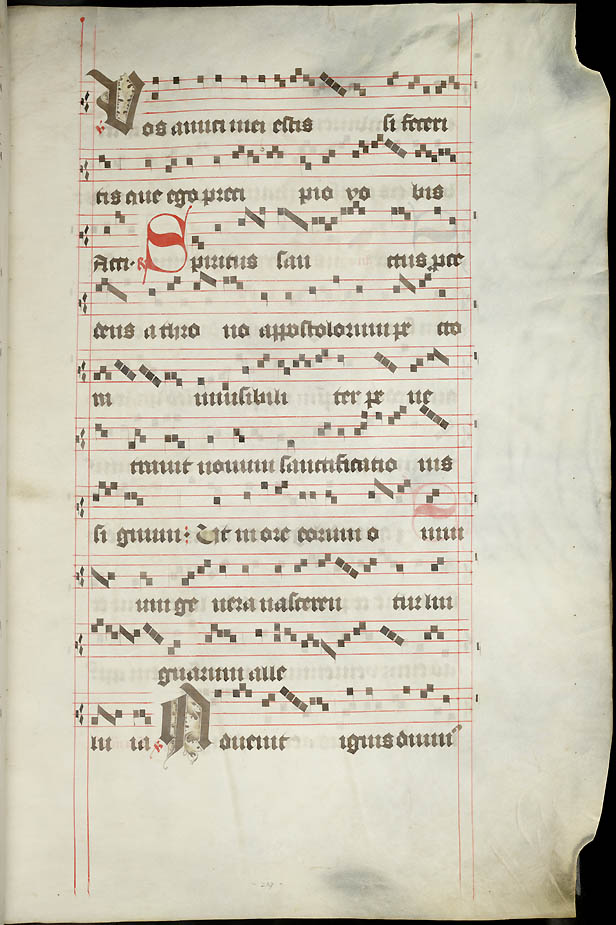 Vos amici mei estis si feceri
tis que ego preci pio vo bis
Acci. R Spiritus san ctus pce
dens a thro no appostolorum pe cto
ra invisibili ter pe ne
travit novum sanctificatio nis
si gnum: Ut in ore eorum o mni
um ge nera nasceren tur lin
guarum alle
lu ia R Advenit ignis divin